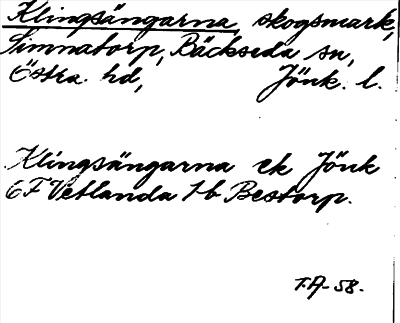 Klingsängarna, skogsmark,
Simnatorp, Bäckseda sn,
Östra hd, Jönk. l.
Klingsängarna ek Jönk
6F Vetlanda 7b Bestorp.
T.A-58.